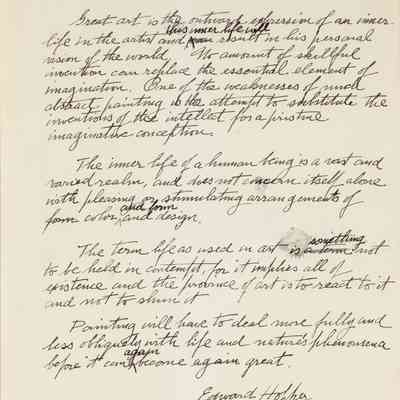 Great art is the outward expression of an inner
life in the artist and this inner life will result in his personal
vision of the world. No amount of skillful
invention can replace the essential element of
imagination. One of the weaknesses of much
abstract painting is the attempt to substitute the
inventions of the intellect for a pristine
imaginative conception.
The inner life of a human being is a vast and
varied realm, and does not concern itself alone
with pleasing or stimulating arrangements of
form color, and form and design.
The term life as used in art is something not
to be held in contempt, for it implies all of
existence and the province of art is to react to it
and not to shun it
Painting will have to deal more fully and
less obliquely with life and nature's phenomena
before it can again become again great.
Edward Hopper